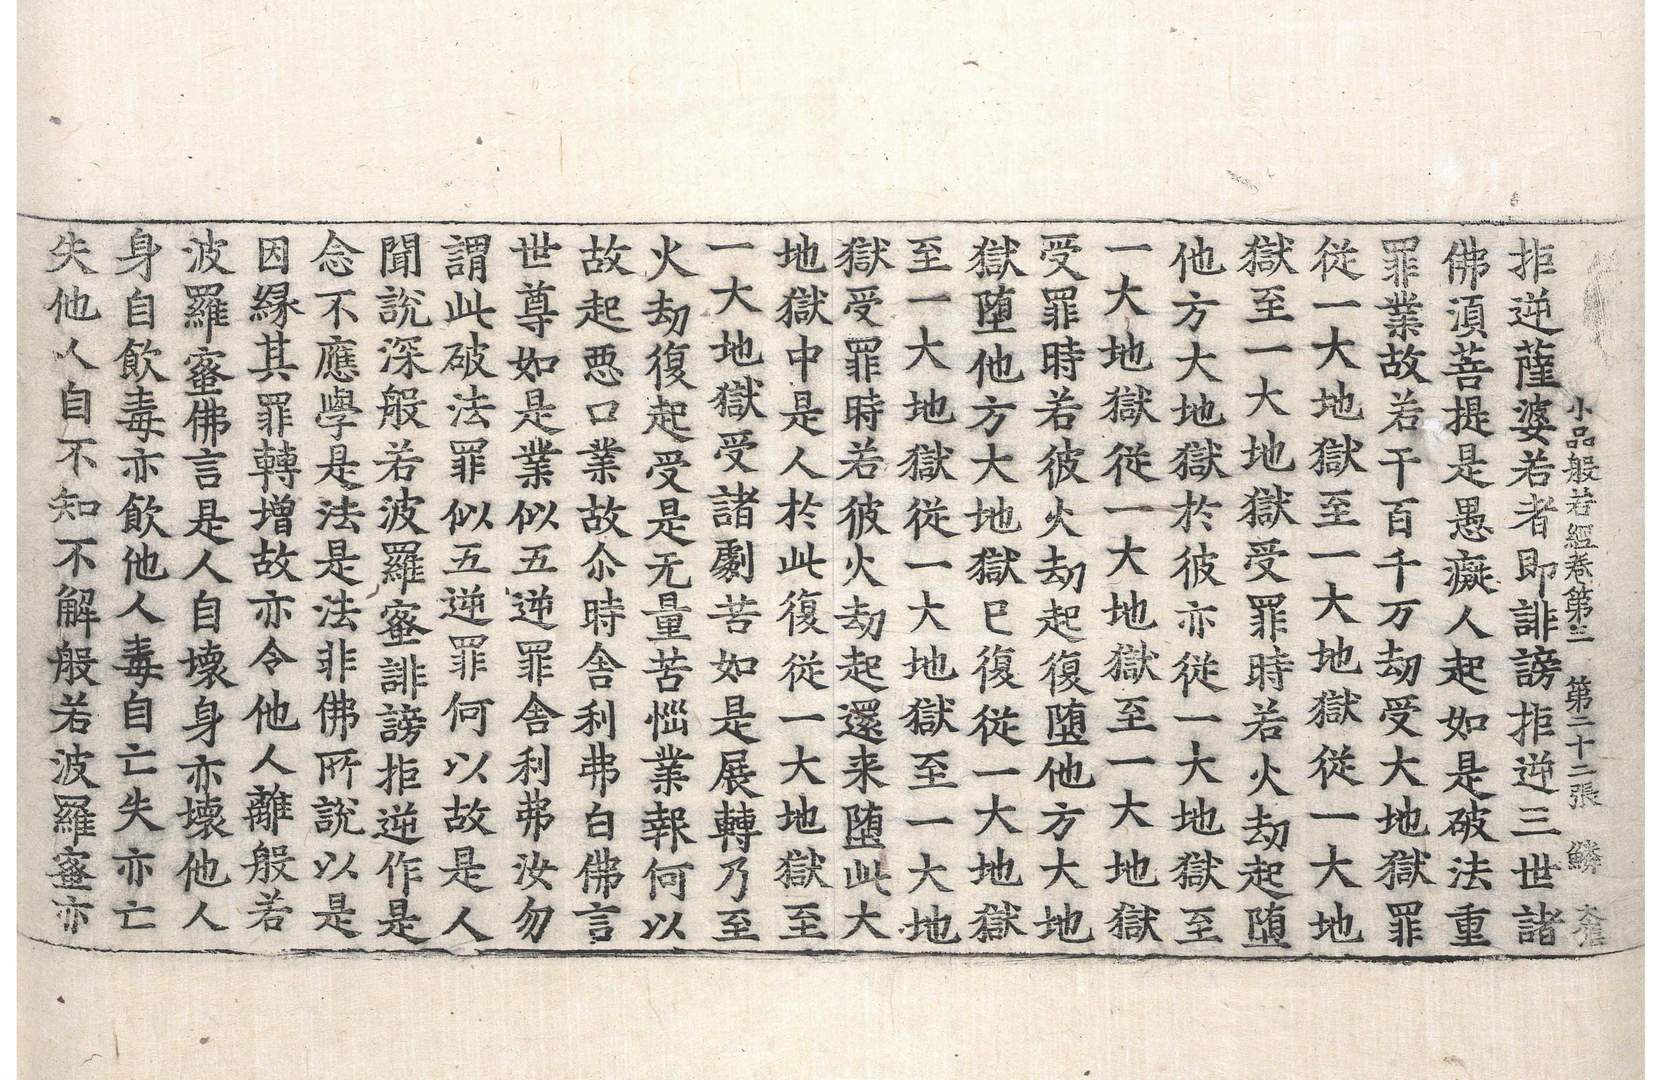 小品般若經卷第三　第二十二張　鱗
拒逆薩婆若者即誹謗拒逆三世諸
佛湏菩提是愚癡人起如是破法重
罪業故若干百千万劫受大地獄罪
從一大地獄至一大地獄從一大地
獄至一大地獄受罪時若火劫起堕
他方大地獄於彼亦從一大地獄至
一大地獄從一大地獄至一大地獄
受罪時若彼火劫起復堕他方大地
獄堕他方大地獄巳復從一大地獄
至一大地獄從一大地獄至一大地
獄受罪時若彼火劫起還来堕此大
地獄中是人於此復從一大地獄至
一大地獄受諸劇苦如是展轉乃至
火劫復起受是无量苦惱業報何以
故起惡口業故尒時舍利弗白佛言
世尊如是業似五逆罪舍利弗汝勿
謂此破法罪似五逆罪何以故是人
聞說深般若波羅蜜誹謗拒逆作是
念不應學是法是法非佛所說以是
因縁其罪轉增故亦令他人離般若
波羅蜜佛言是人自壞身亦壞他人
身自飲毒亦飲他人毒自亡失亦亡
失他人自不知不解般若波羅蜜亦